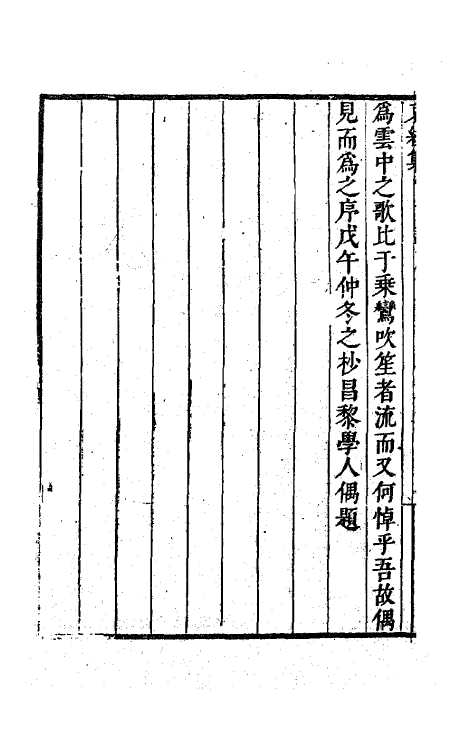 爲雲中之歌比于乘鸞吹笙者流而又何悼乎吾故偶
見而爲之序戊午仲冬之杪昌黎學人偶題